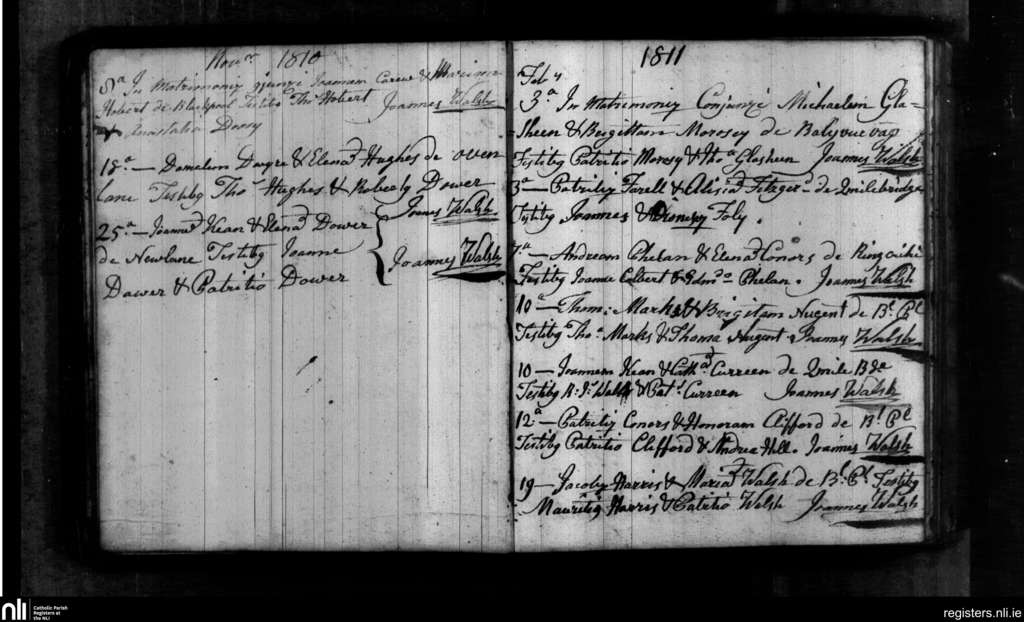 Novr 1810
8a In Matrimoniỹ Joannem Carew &
Hobert de Blackpool Testibq Thos Hobert Joannes Walsh
& Anastatia Dowy
18a — Danielem Dwyre & Elenad Hughes de oven
lane Testibq Thos Hughes & Dower
Joanes Walsh
25a — Joanned Kean & Elenad Dower
de Newlane Testibq Joanne
Dower & Patritio Dower
Joannes Walsh
1811
Feby
3a In Matrimoniy Conjunxi Michaelem Gla=
=sheen & Brigittam Morosey de
Testibq Patritio Morosy & Thoa Glasheen Joannes Walsh
3a — Patritiq Farell & Alisiad de 2milebridge
Testibq Joannes & Foly.
7a — Andream Phelan & Elenad Conors de
Testibq Joanne Colbert & Edmdo Phelan. Joannes Walsh
10a — Thom: Marks & Brigitam Nugent de Bl Pl
Testibq Tho. Marks & Thoma Nugent. Joannes Walsh
10 — Joannem Kean & Cathad Curreen de 2mile Bde
Testibq Walsh & Patr Curreen Joannes Walsh
12a — Patritiq Conors & Honoram Clifford de Bl Pl
Testibq Patritio Clifford & Andrea Hill. Joannes Walsh
19 — Jacobq Harris & Mariad Walsh de Bl. Pl. Testibq
Mauritiq Harris & Patritio Walsh Joannes Walsh
nli Catholic Parish
Registers at
the NLI
registers.nli.ie